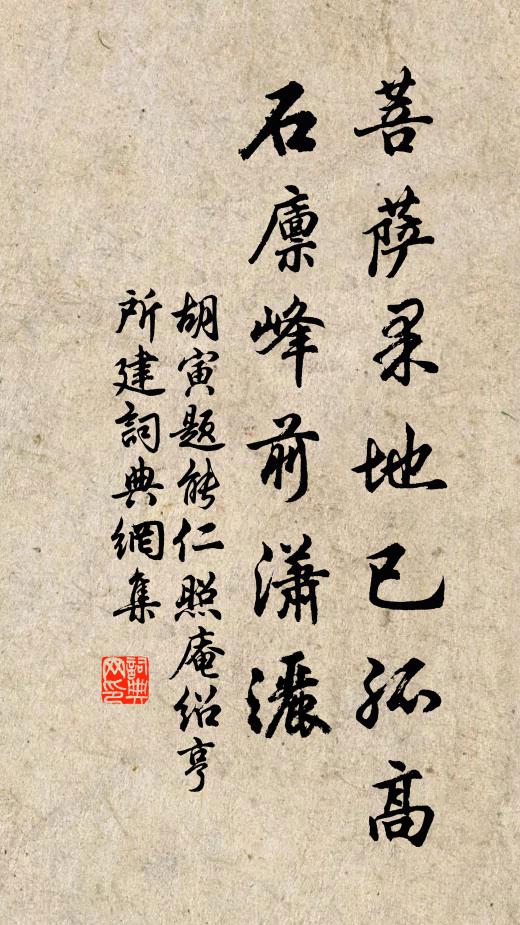 菩萨果地已孤高
石廪峰前瀟灑
胡寅题能仁照庵绍亨
所建詞典網集
詞典网印